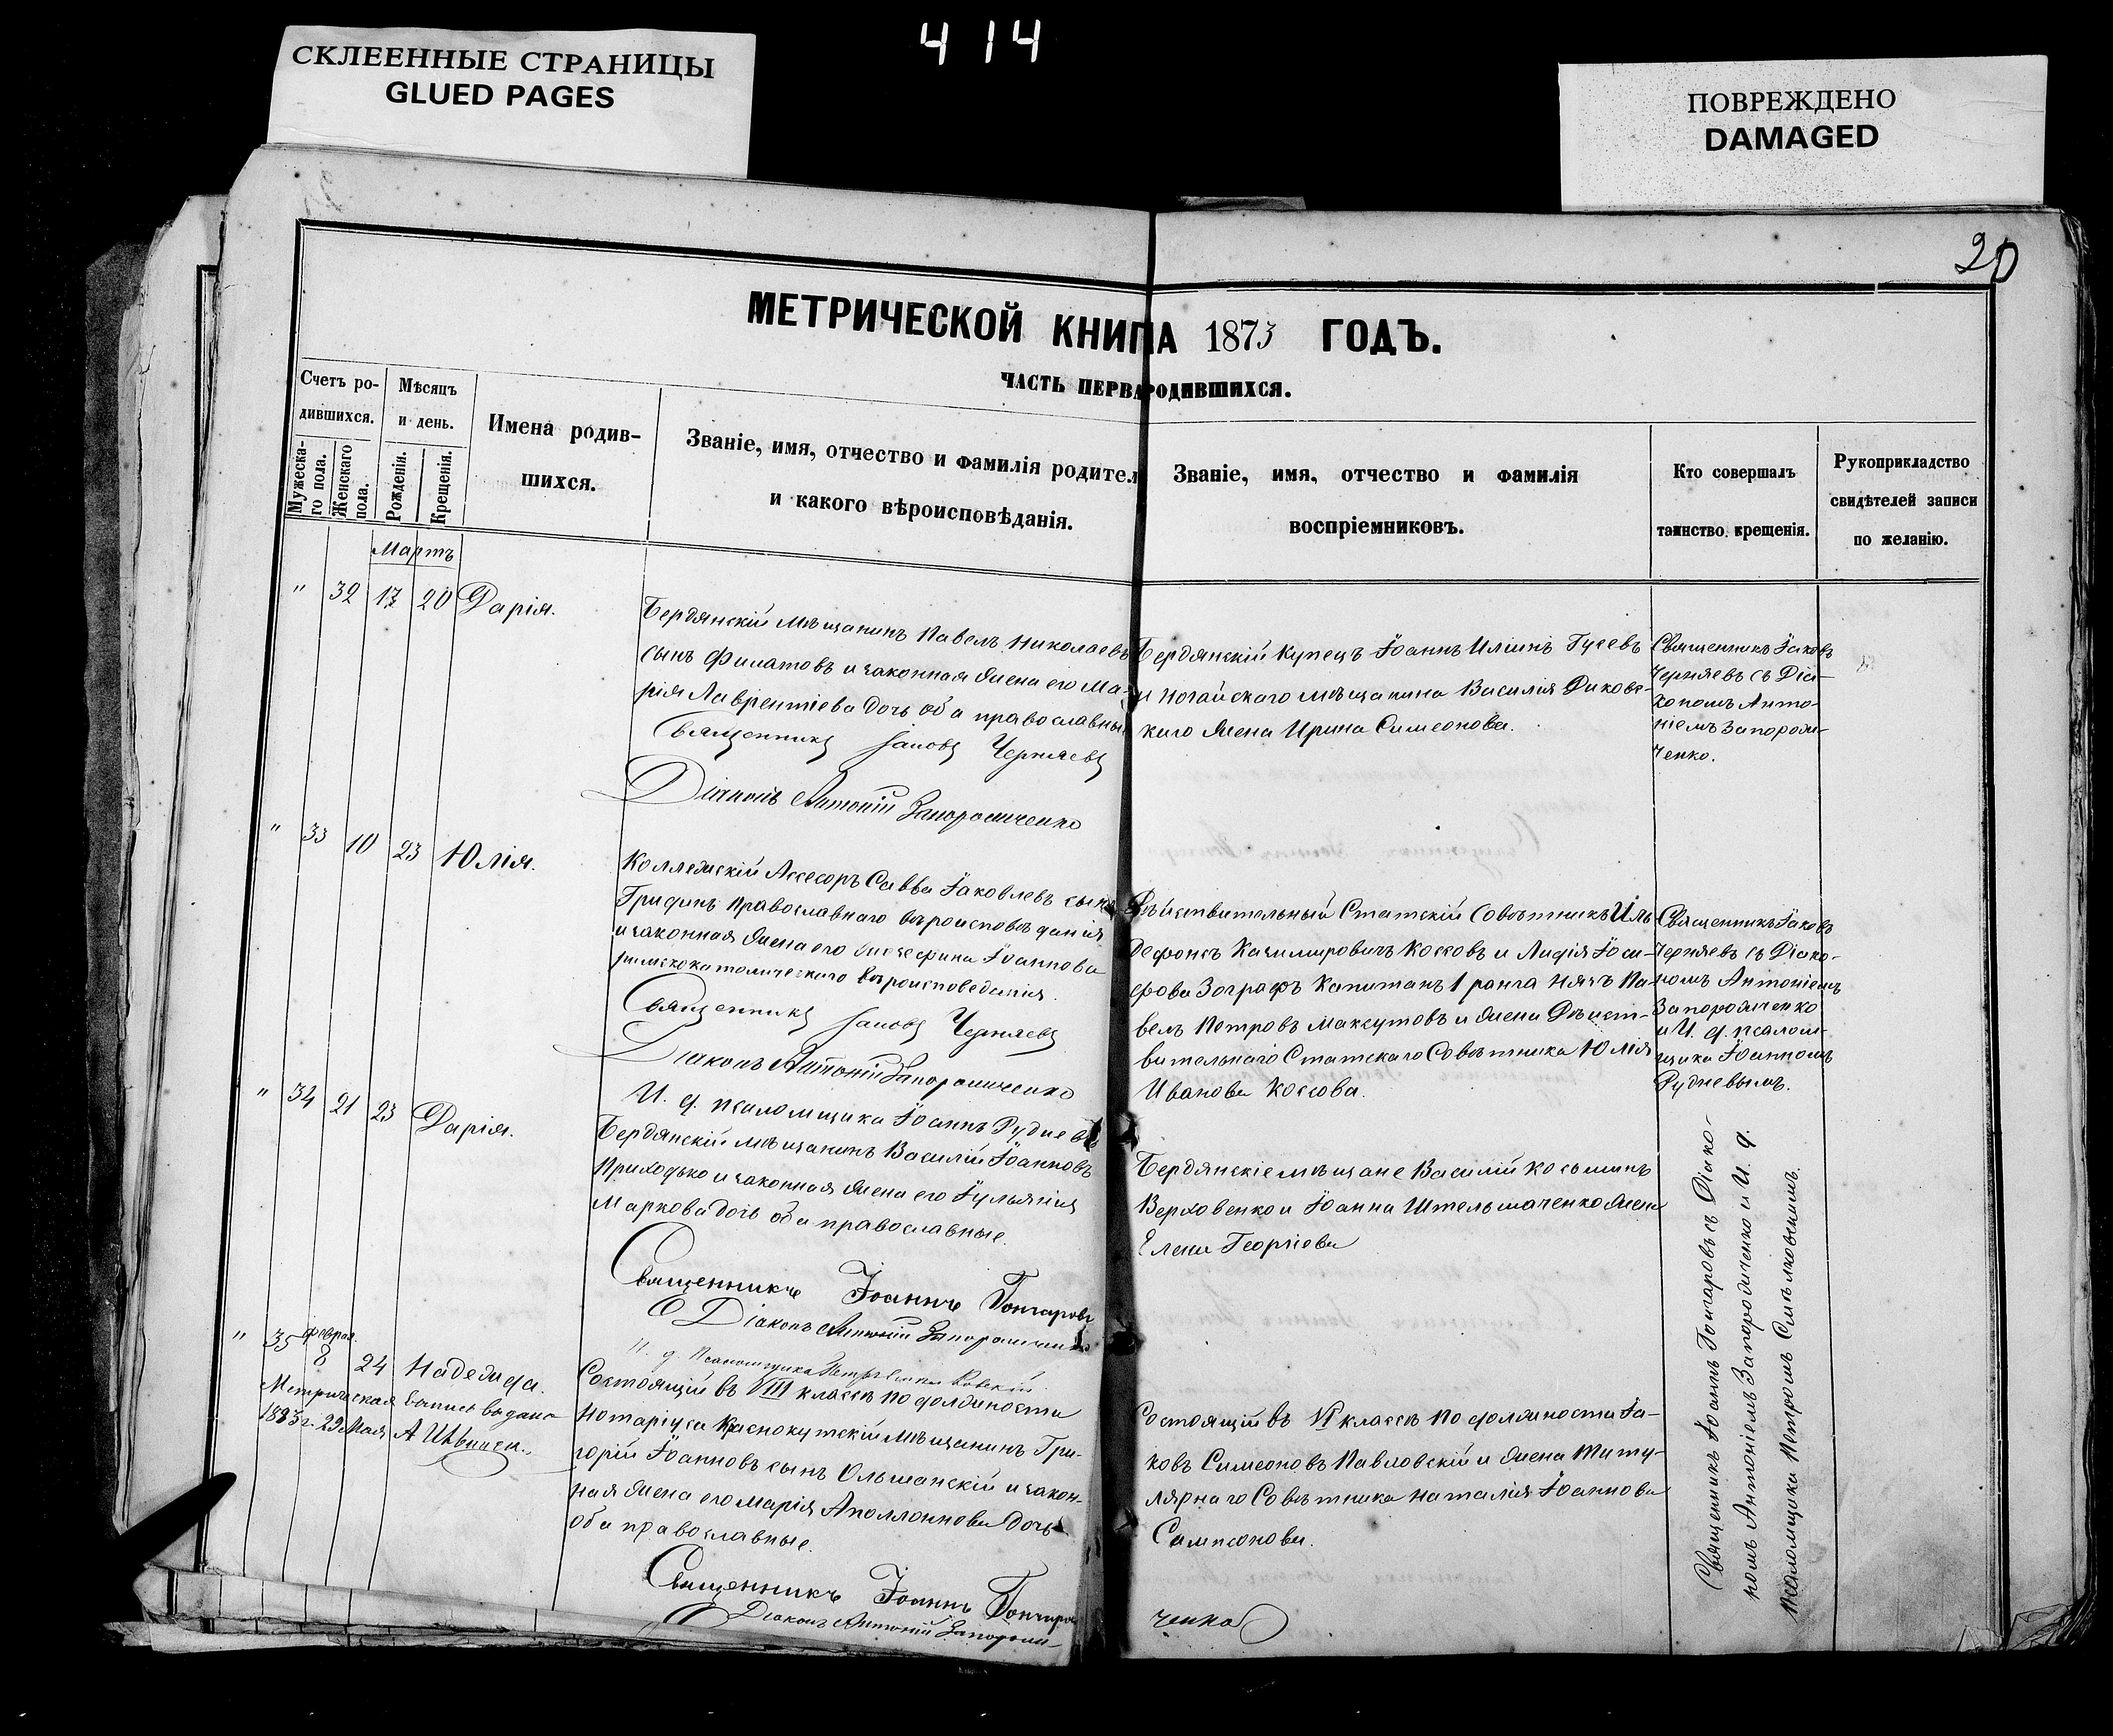 4 14
СКЛЕЕННЫЕ СТРАНИЦЫ
GLUED PAGES
ПОВРЕЖДЕНО
DAMAGED
20
МЕТРИЧЕСКОЙ КНИГА 1873 ГОДЪ.
ЧАСТЬ ПЕРВА РОДИВШИХСЯ.
Счетъ ро-
дившихся.
Мужеска-
го пола.
Женскаго
пола.
Мѣсяцъ
и день.
Рожденія.
Крещенія.
Имена родив-
шихся.
Званіе, имя, отчество и фамилія родител
и какого вѣроисповѣданія.
Званіе, имя, отчество и фамилія
воспріемниковъ.
Кто совершалъ
таинство крещенія.
Рукоприкладство
свидѣтелей записи
по желанію.
Мартъ
" 32 17 20 Дарія.
Бердянскій мѣщанинъ Павелъ Николаевъ
сынъ Филатовъ и законная жена его Ма-
рія Лаврентіева дочь оба православные
Священникъ Іаковъ Черняевъ
Діаконъ Антоній Запорожченко
Бердянскій Купецъ Іоаннъ Иліинъ Гусевъ
и Ногайскаго мѣщанина Василія Диковс-
каго жена Ирина Симеонова.
Священникъ Іаковъ
Черняевъ съ Діа-
кономъ Анто-
ніемъ Запорож-
ченко.
" 33 10 23 Юлія.
Коллежскій Ассесоръ Савва Іаковлевъ сынъ
Грифинъ Православнаго вѣроисповѣданія
и законная жена его Іоаннова
римскокатолическаго вѣроисповеданія.
Священникъ Іаковъ Черняевъ
Діаконъ Антоній Запорожченко
И. д. псаломщика Іоаннъ Рудневъ
Дѣйствительный Статскій Совѣтникъ Иль
дефонсъ Казимировичъ Коссовъ и Лидія Іоси-
фова Зографъ Капитанъ 1 ранга Князь Па-
велъ Петровъ Максутовъ и жена Дѣйст-
вительнаго Статскаго Совѣтника Юлія
Иванова Коссова.
Священникъ Іаковъ
Черняевъ съ Діако-
номъ Антоніемъ
Запорожченко
и И. д. псалом-
щика Іоанномъ
Рудневымъ.
" 34 21 23 Дарія.
Бердянскій мѣщанинъ Василій Іоанновъ
Приходько и законная жена его Іульянія
Маркова дочь оба православные.
Священникъ Іоаннъ Гончаровъ
Діаконъ Антоній Запорожченко
И. д. Псаломщика Петръ
Бердянскіе мѣщане Василій Косьминъ
Верховенко и Іоанна Штельмаченко жена
Елена Георгіева
Священникъ Іоаннъ Гончаровъ съ Діако-
номъ Антоніемъ Запорожченко и И. д.
Псаломщика Петромъ
" 35 Феврал. 8 24 Надежда.
Метрическая выпись выдана
1883 г. 29 Мая
Состоящій въ VIII классѣ по должности
Нотаріуса Краснокутскій мѣщанинъ Гри-
горій Іоанновъ сынъ Ольшанскій и закон-
ная жена его Марія Аполлоннова дочь
оба православные.
Священникъ Іоаннъ Гончаров
Діаконъ Антоній Запорож-
Состоящій въ VI классѣ по должности Іа-
ковъ Симеоновъ Павловскій и жена Титу-
лярнаго Совѣтника Наталія Іоаннова
Сампсонова.
ченко